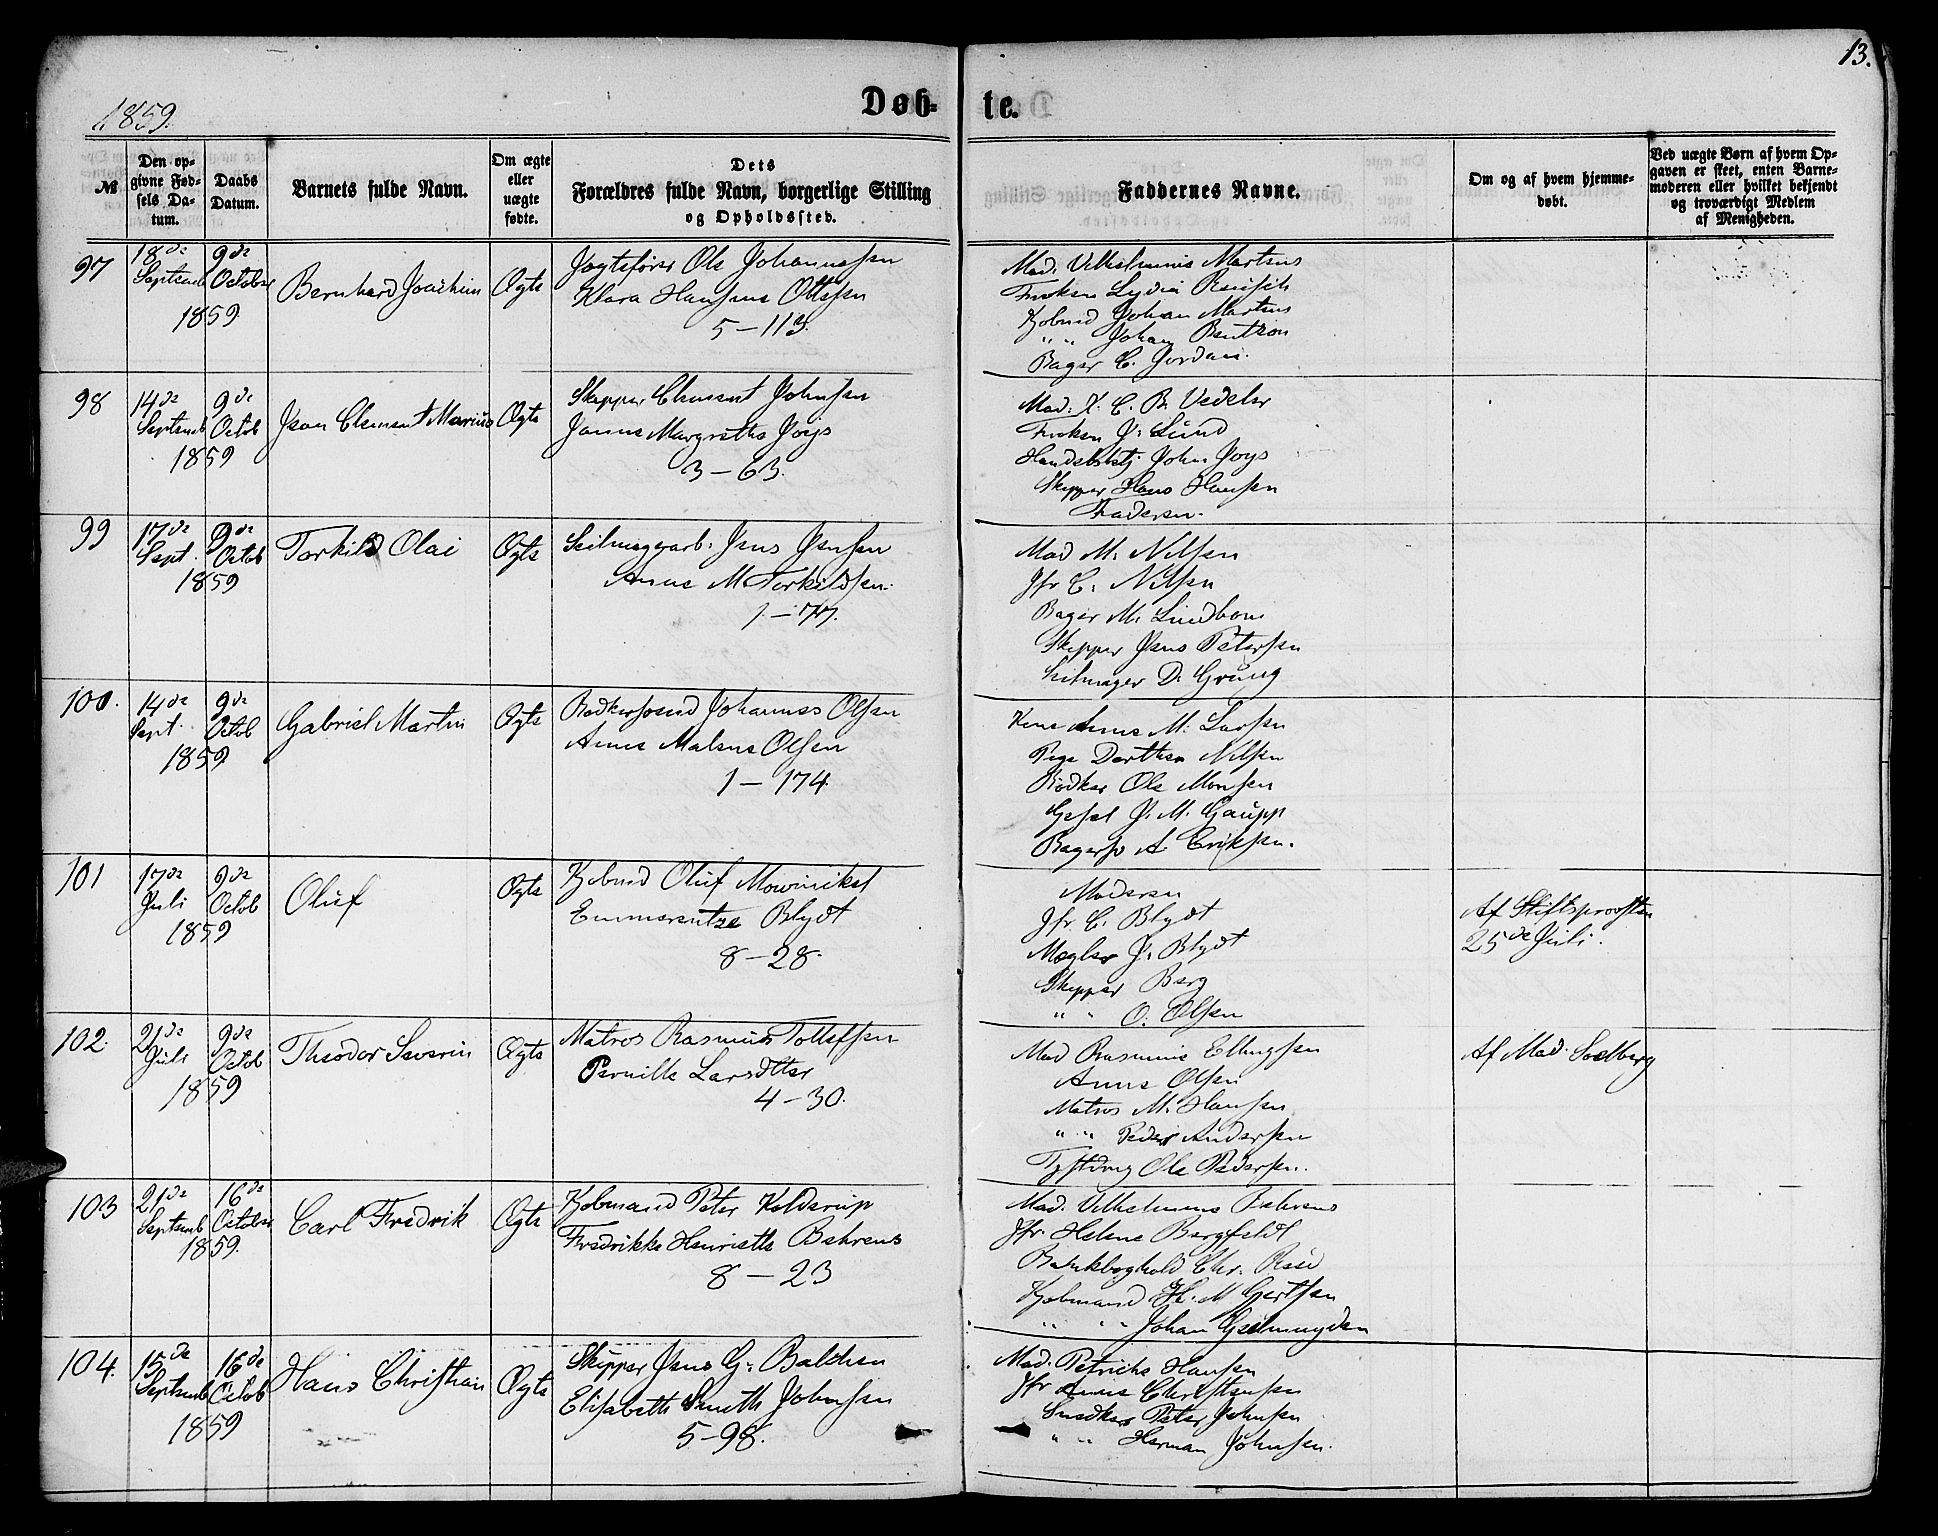 13.
1859.
Døb- te.
№
Den opgivne Fødsels Datum.
Daabs Datum.
Barnets fulde Navn.
Om ægte eller uægte fødte.
Dets Forældres fulde Navn, borgerlige Stilling og Opholdssted.
Faddernes Navne.
Om og af hvem hjemmedøbt.
Ved uægte Børn af hvem Opgaven er skeet, enten Barnemoderen eller hvilket bekjendt og troværdigt Medlem af Menigheden.
97
18de Septemb
9de October
1859
Bernhard Joachim
Ægte
Jagtefører Ole Johannesen
Klara Hansine Ottesen
5-113.
Mad. Vilhelmine Martens
Frøken Lydia
Kjøbmd Johan Martens
" " Johan Bentzon
Bager C. Jordan.
98
14de Septemb
9de Octob
1859
Jean Clement Marius
Ægte
Skipper Clement Johnsen
Janne Margrethe Joys
3-63.
Mad. K. C. B. Vedeler
Frøken J. Lund
Handelsbetj. John Joys
Skipper Hans Hansen
Faderen.
99
17de Sept.
9de Octob
1859
Torkild Olai
Ægte
Seilmagerarb. Jens Jensen
Anne M Torkildsen.
1-77.
Mad M. Nilsen
Jfr C. Nilsen
Bager M. Lindbom
Skipper Jens Petersen
Seilmager D. Grung
100.
14de Sept.
9de Octob
1859
Gabriel Martin
Ægte
Bødkersvend Johannes Olsen
Anne Malene Olsen
1-174.
Kone Anne M. Larsen
Pige Dorthea Nilsen
Bødker Ole Monsen
Gesel J. M. Gaupp
Bagersv A. Eriksen.
101
17de Juli
9de Octob
1859
Oluf
Ægte
Kjøbmd Oluf Mowinckel
Emmerentze Blydt
8-28.
Moderen
Jfr. C. Blydt
Mægler J. Blydt
Skipper Berg
" " O. Olsen
Af Stiftsprovsten
25de Juli.
102.
21de Juli
9de Octob
1859
Theodor Severin
Ægte
Matros Rasmus Tollefsen
Pernille Larsdtter
4-30.
Mad Rasmine Ellingsen
Anne Olsen
Matros M. Hansen
" " Peder Andersen
Ole Pedersen.
Af Mad. Soelberg
103
21de Septemb
16de October
1859.
Carl Fredrik
Ægte
Kjøbmand Peter Kolderup
Fredrikke Henriette Behrens
8-23
Mad. Vilhelmine Behrens
Jfr. Helene Bergfeldt
Bankboghold Chr.
Kjøbmand H. M Gertsen
" " Johan Geelmuyden
104.
15de Septemb
16de Octob
1859
Hans Christian
Ægte
Skipper Jens G. Balchen
Elisabeth Smith Johnsen
5-98.
Mad. Petriche Hansen
Jfr Anne Christensen
Snedker Peter Johnsen
" " Herman Johnsen.